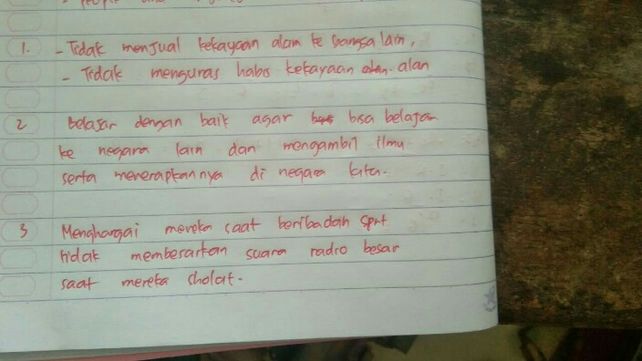 1. - Tidak menjual kekayaan alam ke bangsa lain,
- Tidak menguras habis kekayaan alan
2 Belajar dengan baik agar bisa belajar
ke negara lain dan mengambil ilmu
serta menerapkannya di negara kita.
3 Menghargai mereka saat beribadah sprt
tidak membesarkan suara radio besar
saat mereka sholat.